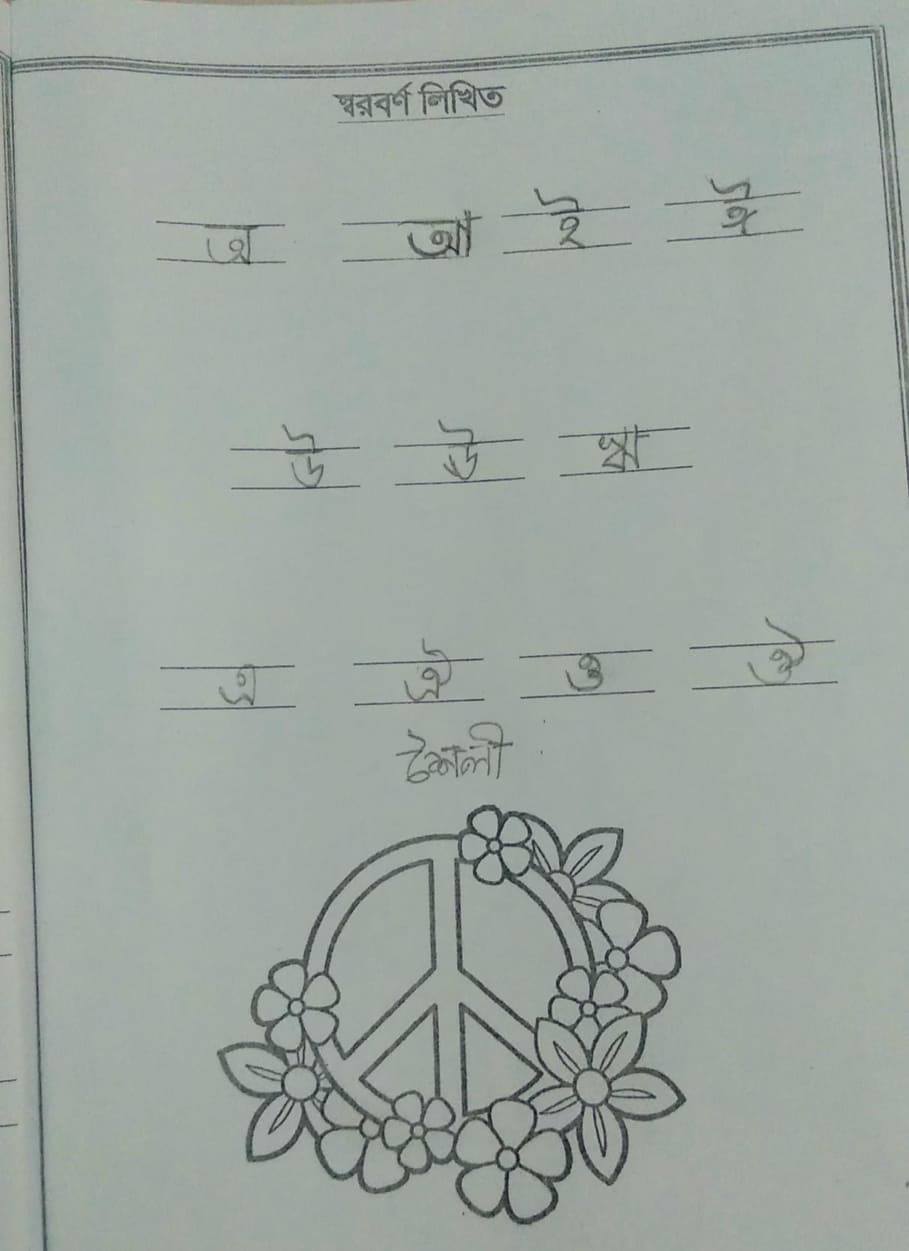 স্বরবর্ণ লিখিত
অ আ ই ঈ
উ ঊ ঋ
এ ঐ ও ঔ
শৈলী